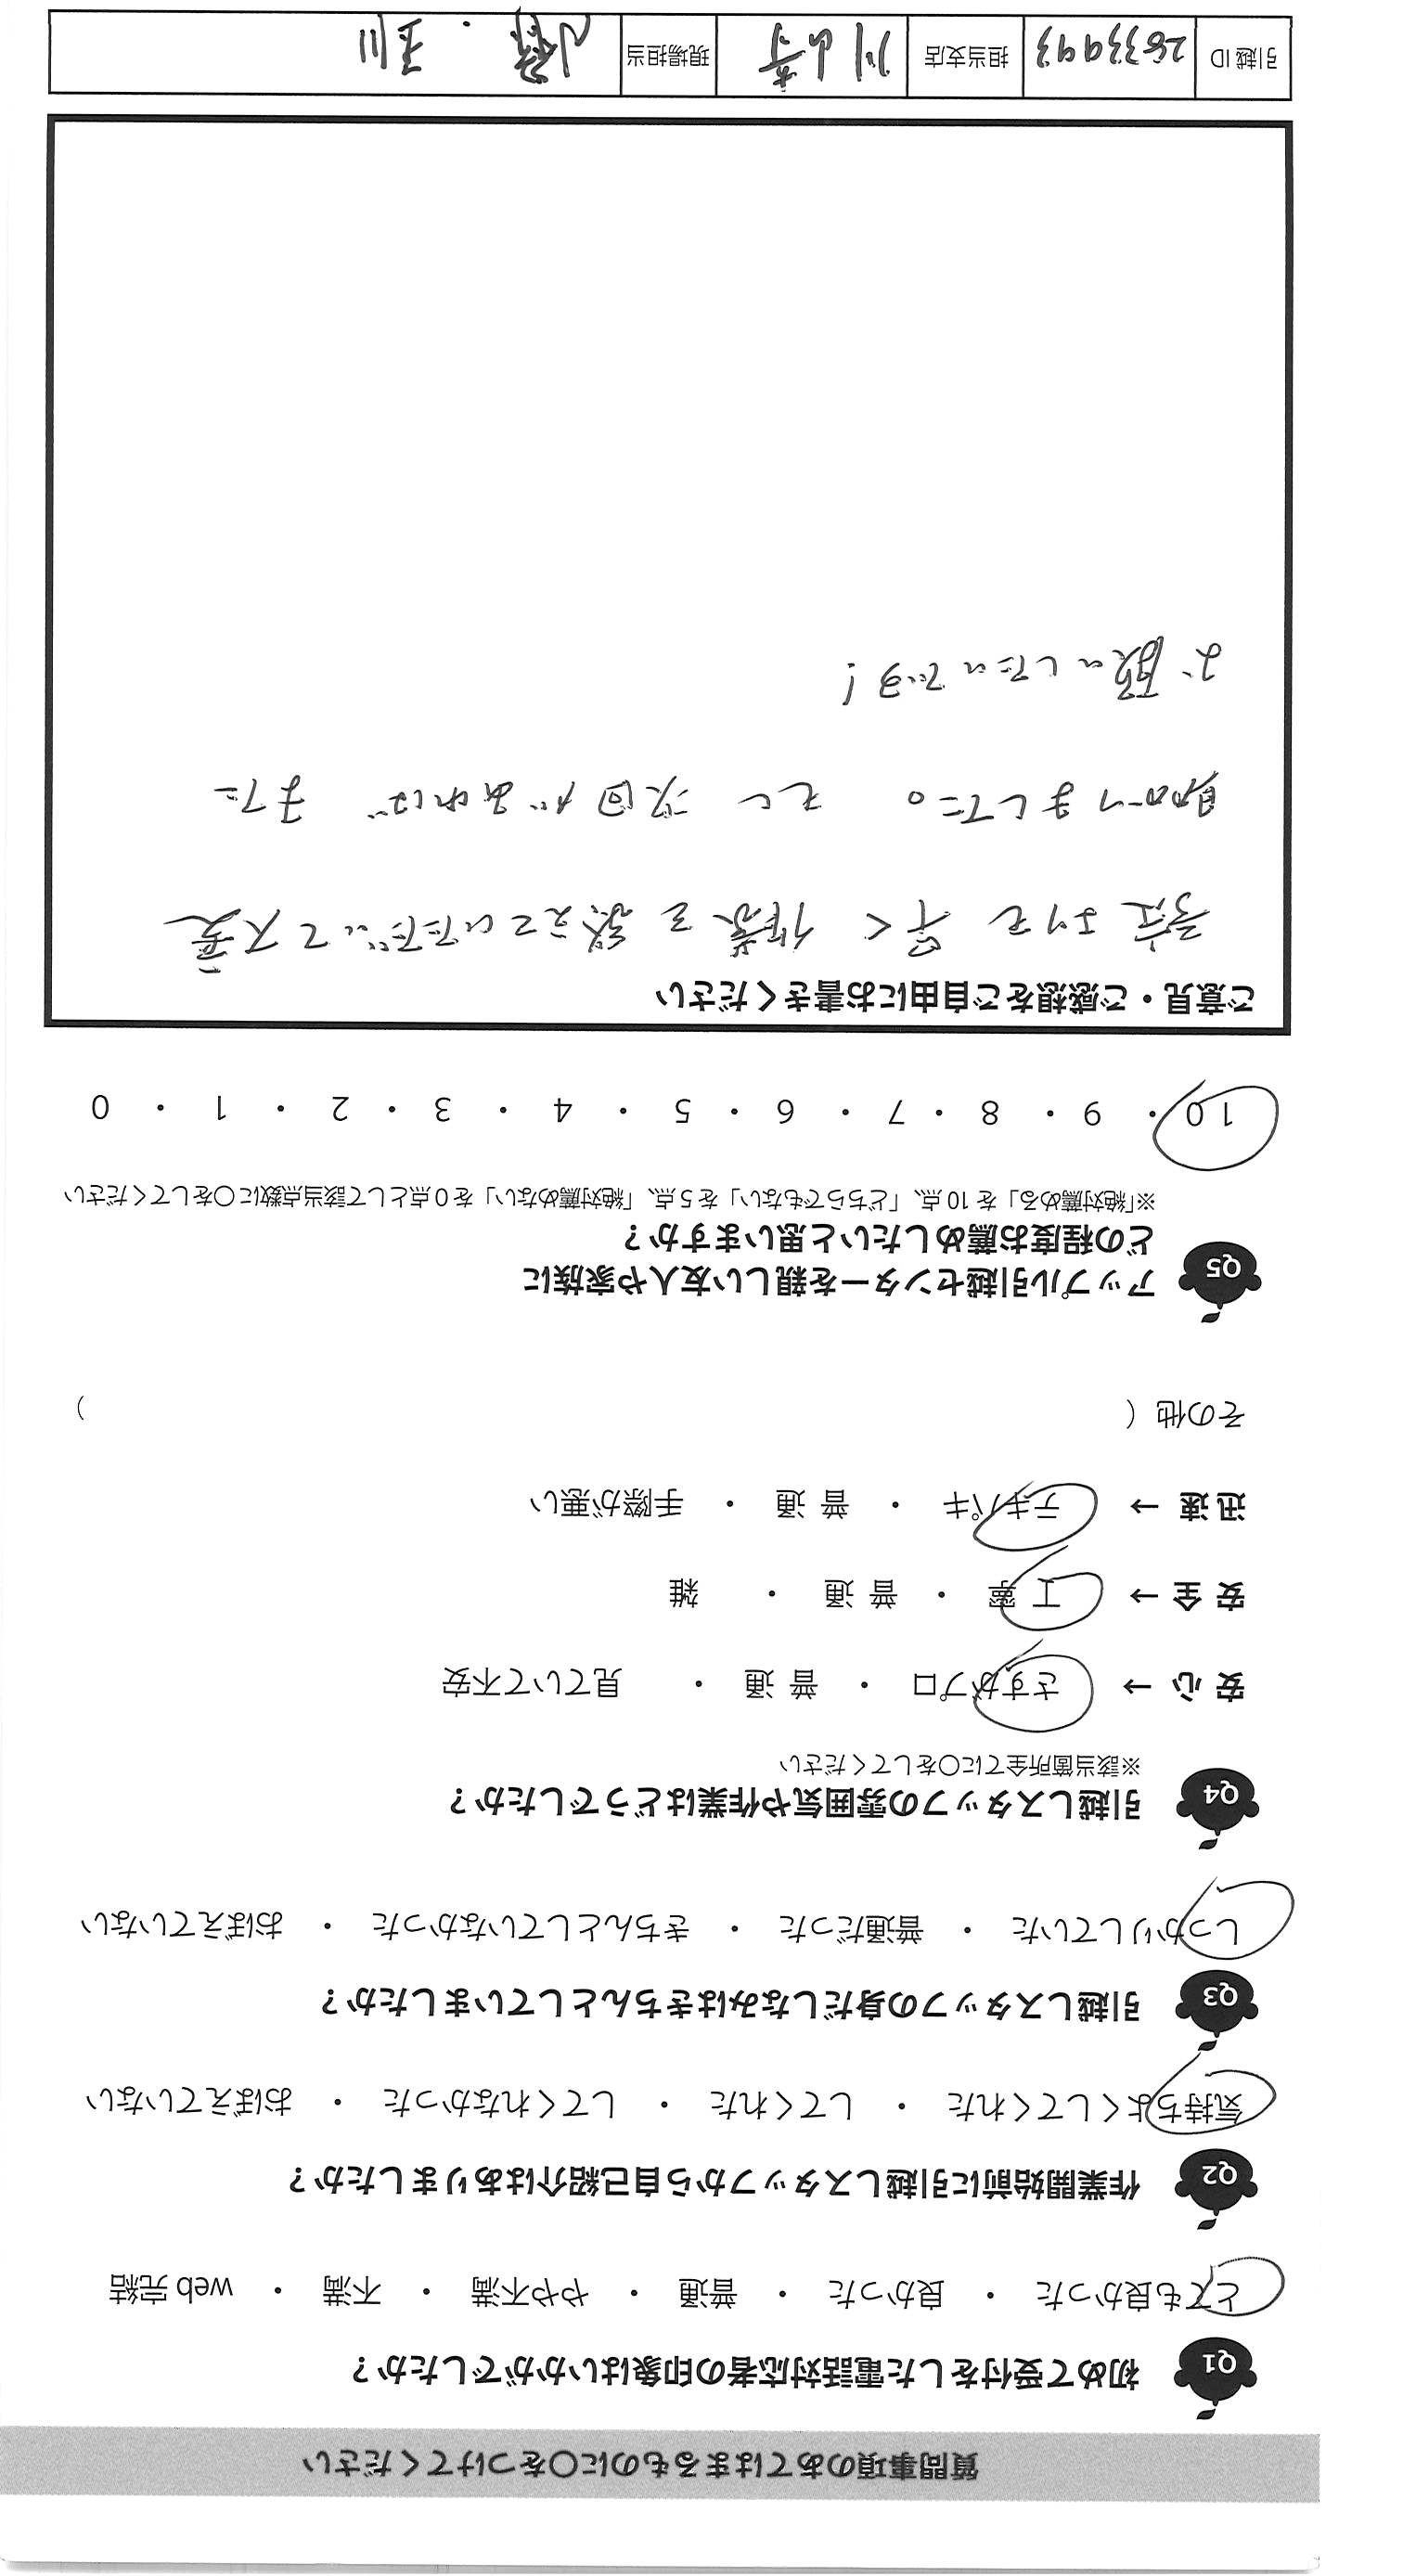 質問事項のあてはまるものに○をつけてください
Q1 初めて受付をした電話対応者の印象はいかがでしたか？
とても良かった ・ 良かった ・ 普通 ・ やや不満 ・ 不満 ・ web 完結
Q2 作業開始前に引越しスタッフから自己紹介はありましたか？
気持ちよくしてくれた ・ してくれた ・ してくれなかった ・ おぼえていない
Q3 引越しスタッフの身だしなみはきちんとしていましたか？
しっかりしていた ・ 普通だった ・ きちんとしていなかった ・ おぼえていない
Q4 引越しスタッフの雰囲気や作業はどうでしたか？
※該当箇所全てに○をしてください
安 心 → さすがプロ ・ 普 通 ・ 見ていて不安
安 全 → 丁 寧 ・ 普 通 ・ 雑
迅 速 → テキパキ ・ 普 通 ・ 手際が悪い
その他（ ）
Q5 アップル引越センターを親しい友人や家族に
どの程度お薦めしたいと思いますか？
※「絶対薦める」を 10 点、「どちらでもない」を 5 点、「絶対薦めない」を 0 点として該当点数に○をしてください
10 ・ 9 ・ 8 ・ 7 ・ 6 ・ 5 ・ 4 ・ 3 ・ 2 ・ 1 ・ 0
ご意見・ご感想をご自由にお書きください
予定よりも 早く 作業を 終えていただいて大変
助かりました。 もし 次回があれば また
お願いしたいです！
引越 ID 2833993 担当支店 川崎 現場担当 ・ 玉川